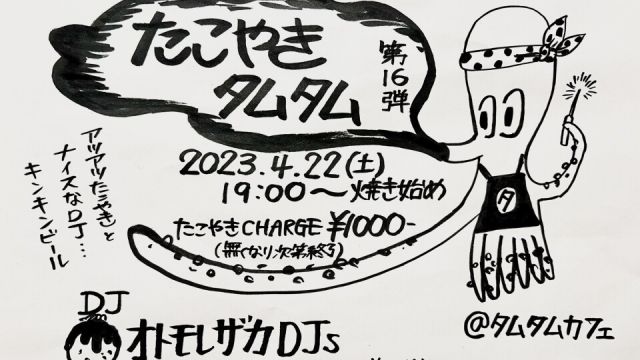 たこやき
タムタム
第16弾
2023.4.22(土)
19:00〜焼き始め
たこやきCHARGE ¥1000-
(無くなり次第終了)
アツアツたこやきと
ナイスなDJ…
キンキンビール
タ
@タムタムカフェ
DJ
オトモレザカDJs